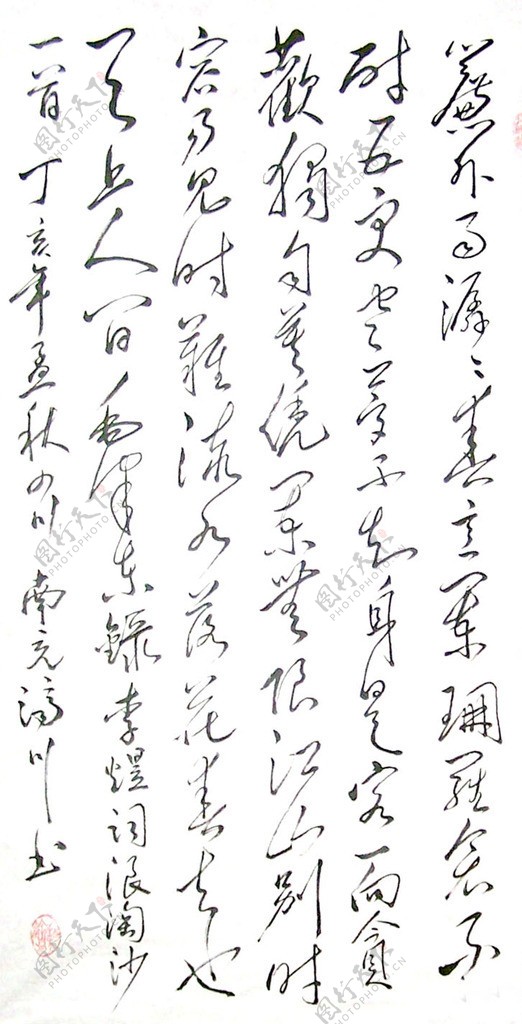 簾外雨潺潺春意闌珊羅衾不
耐五更寒夢里不知身是客一向貪
歡獨自莫憑闌無限江山別時
容易見時難流水落花春去也
天上人間毛澤東錄李煜詞浪淘沙
一首丁亥年孟秋四川南充川书
图行天下
PHOTOPHOTO.CN